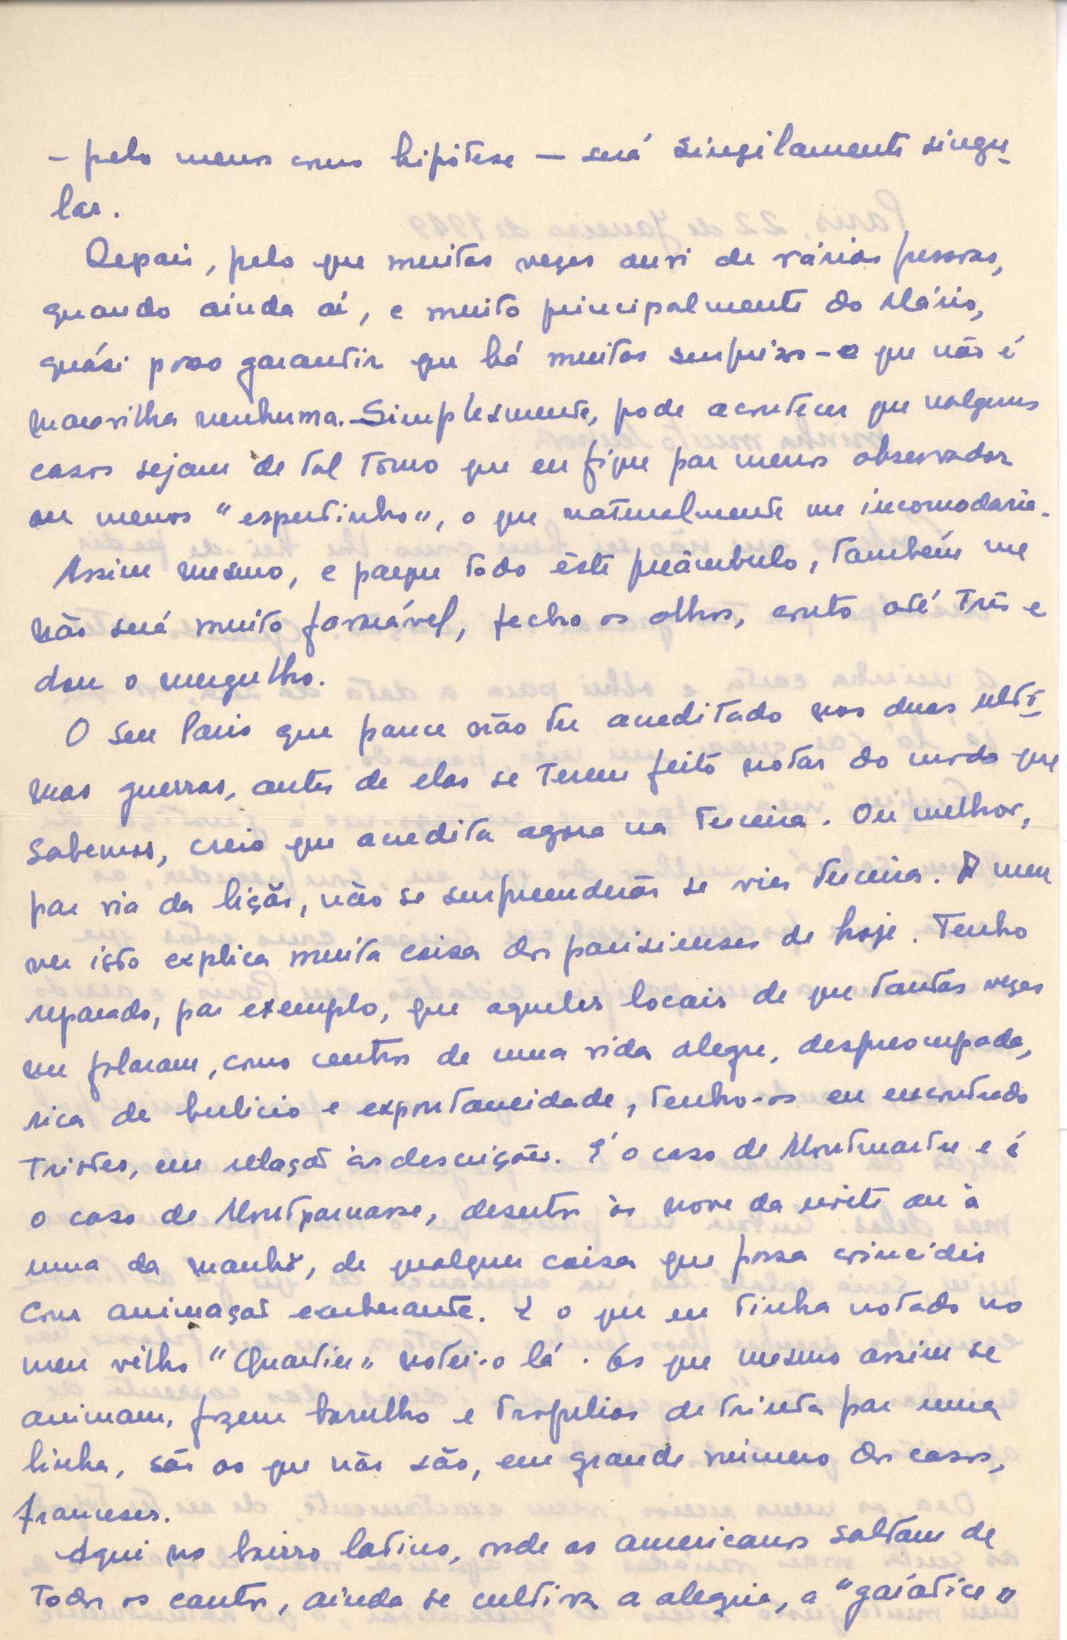 - pelo menos como hipótese - será singilamente singu-
lar.
Depois, pelo que muitas vezes ouvi de várias pessoas,
quando ainda aí, e muito principalmente do Mário,
quási posso garantir que há muitas surprezas - o que não é
maravilha nenhuma. Simplesmente, pode acontecer que nalguns
casos sejam de tal tomo que eu fique por menos observador
ou menos "espertinho", o que naturalmente me incomodaria.
Assim mesmo, e porque todo êste preâmbulo, também me
não será muito favorável, fecho os olhos, conto até três e
dou o mergulho.
O seu Paris que parece não ter acreditado nas duas últi-
mas guerras, antes de elas se terem feito notar do modo que
sabemos, creio que acredita agora na terceira. Ou melhor,
por via da lição, não se surpreenderão se vier terceira. A meu
ver isto explica muita coisa dos parisienses de hoje. Tenho
reparado, por exemplo, que aqueles locais de que tantas vezes
me falaram, como centros de uma vida alegre, despreocupada,
rica de bulicio e expontaneidade, tenho-os eu encontrado
tristes, em relação às descrições. É o caso de Montmartre e é
o caso de Montparnasse, desertos às nove da noite ou à
uma da manhã, de qualquer coisa que possa coincidir
com animação exuberante. E o que eu tinha notado no
meu velho "Quartier" notei-o lá. Os que mesmo assim se
animam, fazem barulho e tropelias de trinta por uma
linha, são os que não são, em grande número dos casos,
franceses.
Aqui no bairro latino, onde os americanos saltam de
todos os cantos, ainda se cultiva a alegria, a "gaiatice"